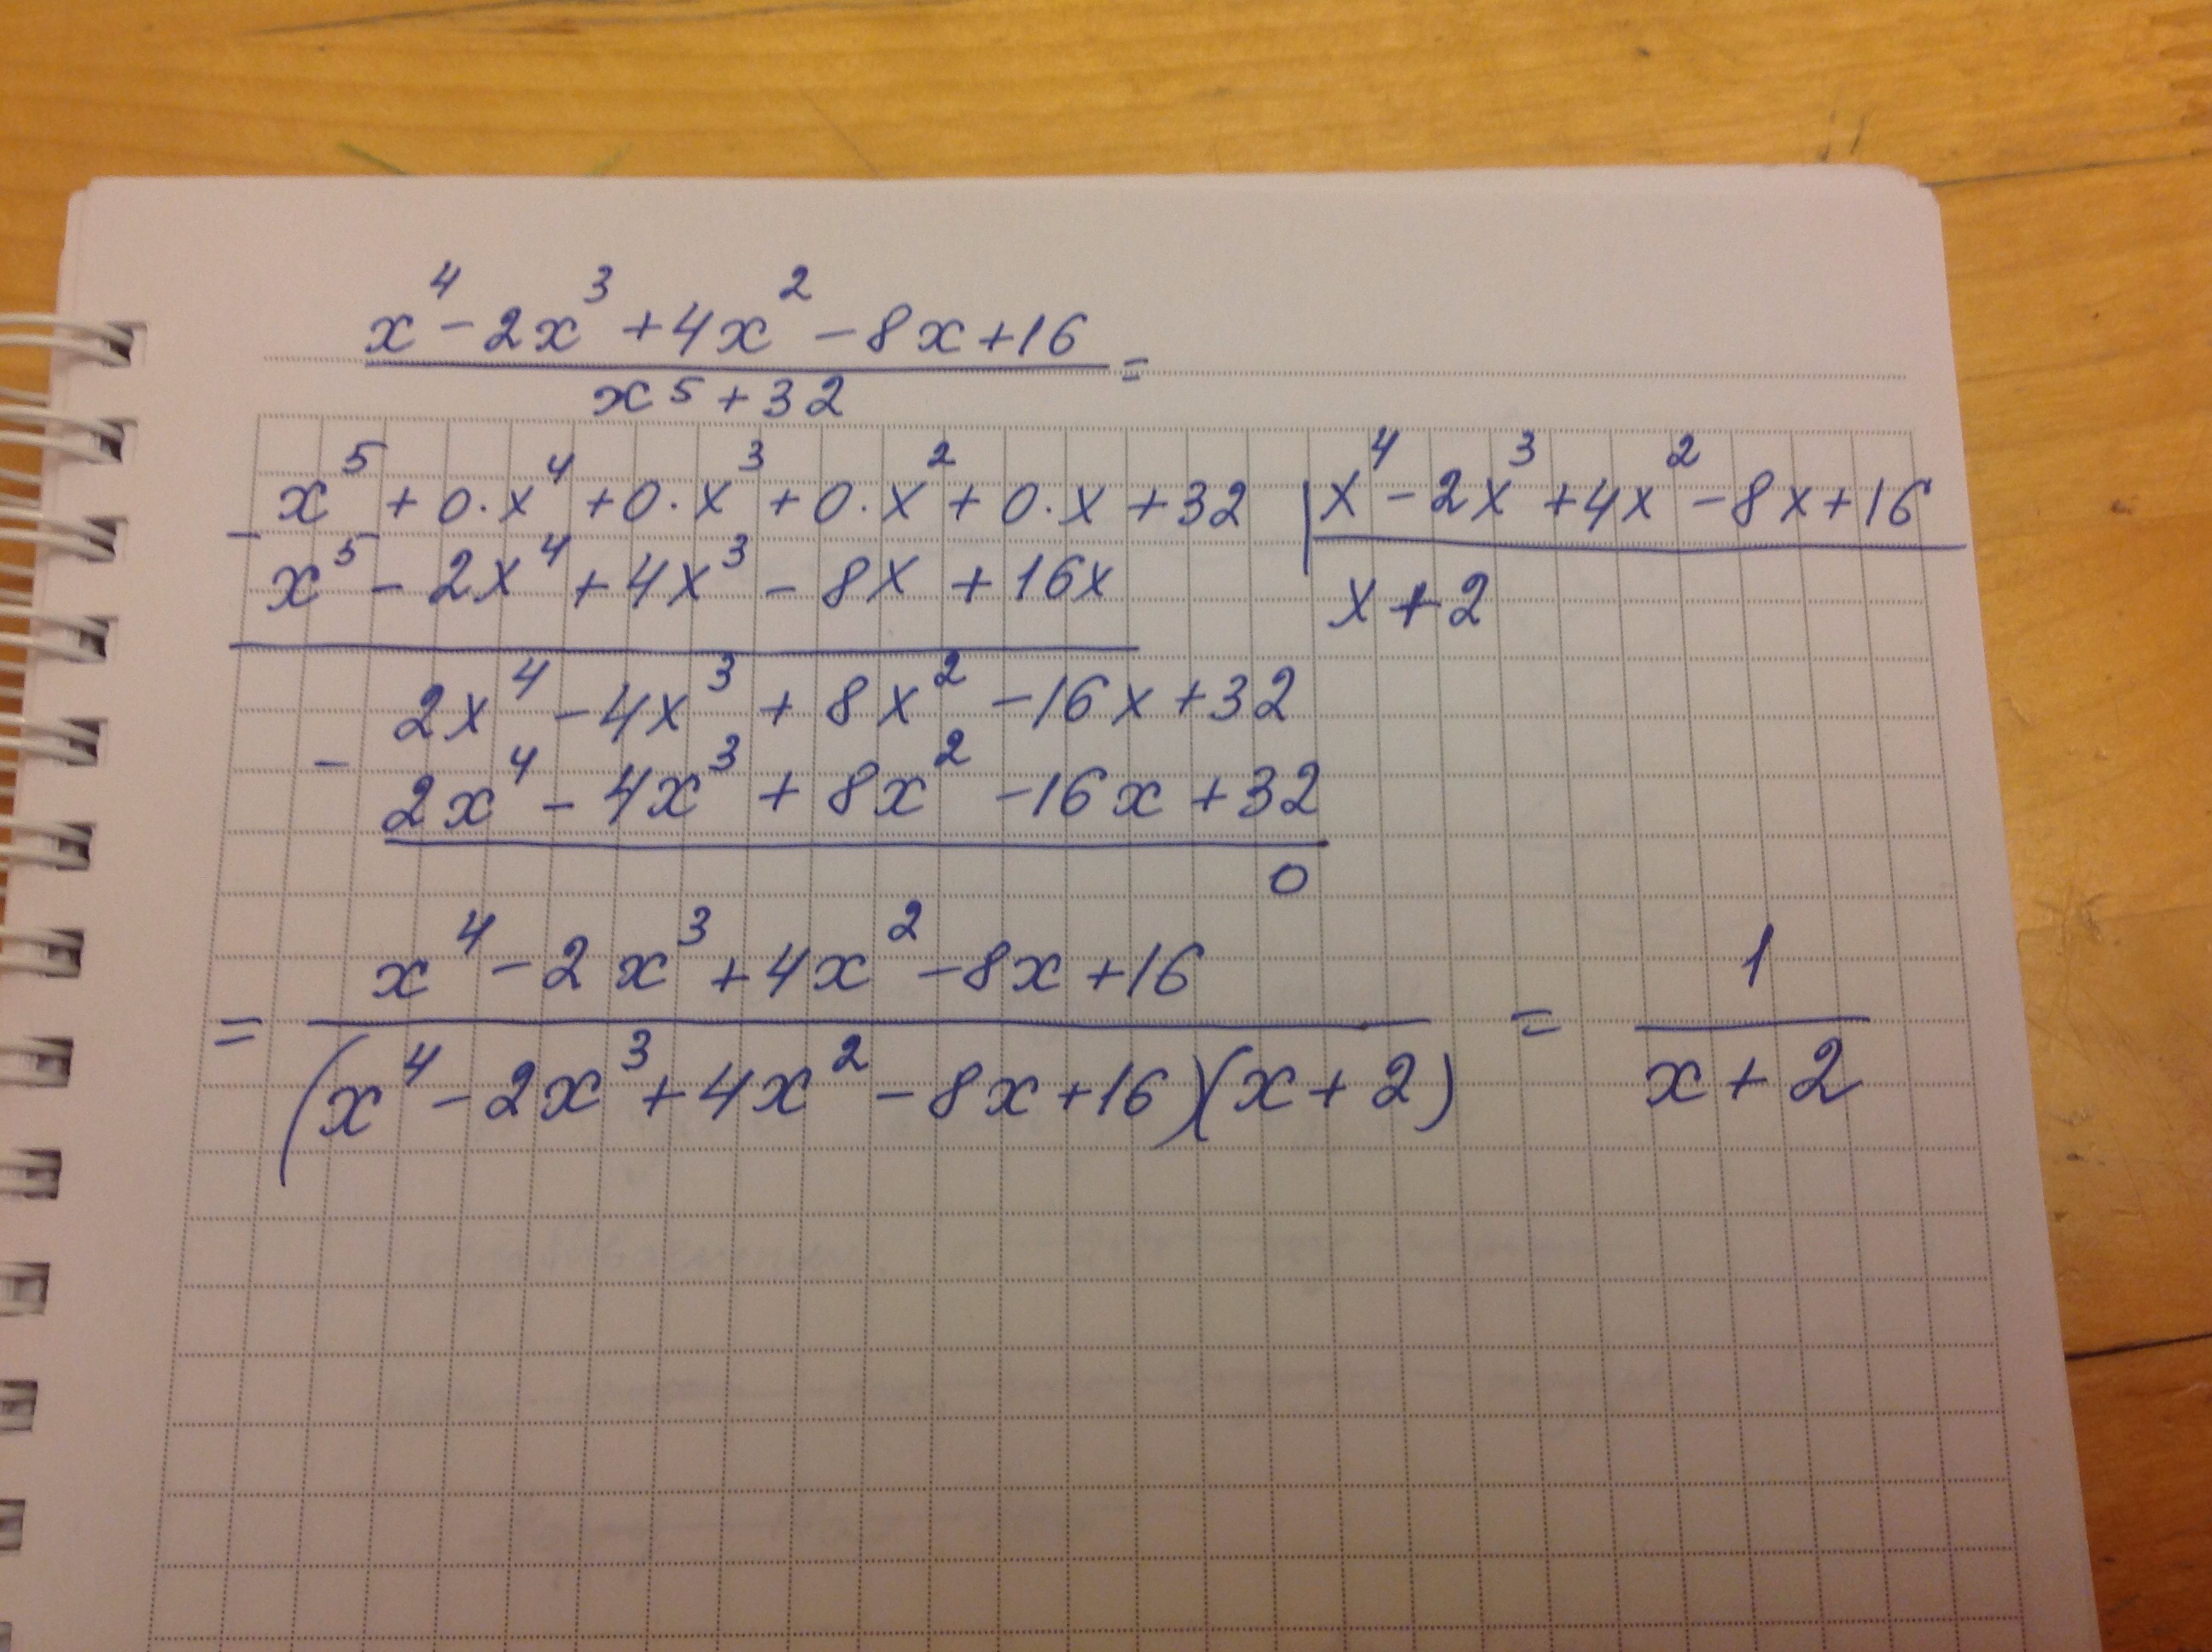 x⁴ - 2x³ + 4x² - 8x + 16
x⁵ + 32 =
x⁵ + 0·x⁴ + 0·x³ + 0·x² + 0·x + 32 | x⁴ - 2x³ + 4x² - 8x + 16
- x⁵ - 2x⁴ + 4x³ - 8x + 16x x + 2
2x⁴ - 4x³ + 8x² - 16x + 32
- 2x⁴ - 4x³ + 8x² - 16x + 32
0
x⁴ - 2x³ + 4x² - 8x + 16 1
= (x⁴ - 2x³ + 4x² - 8x + 16)(x + 2) = x + 2